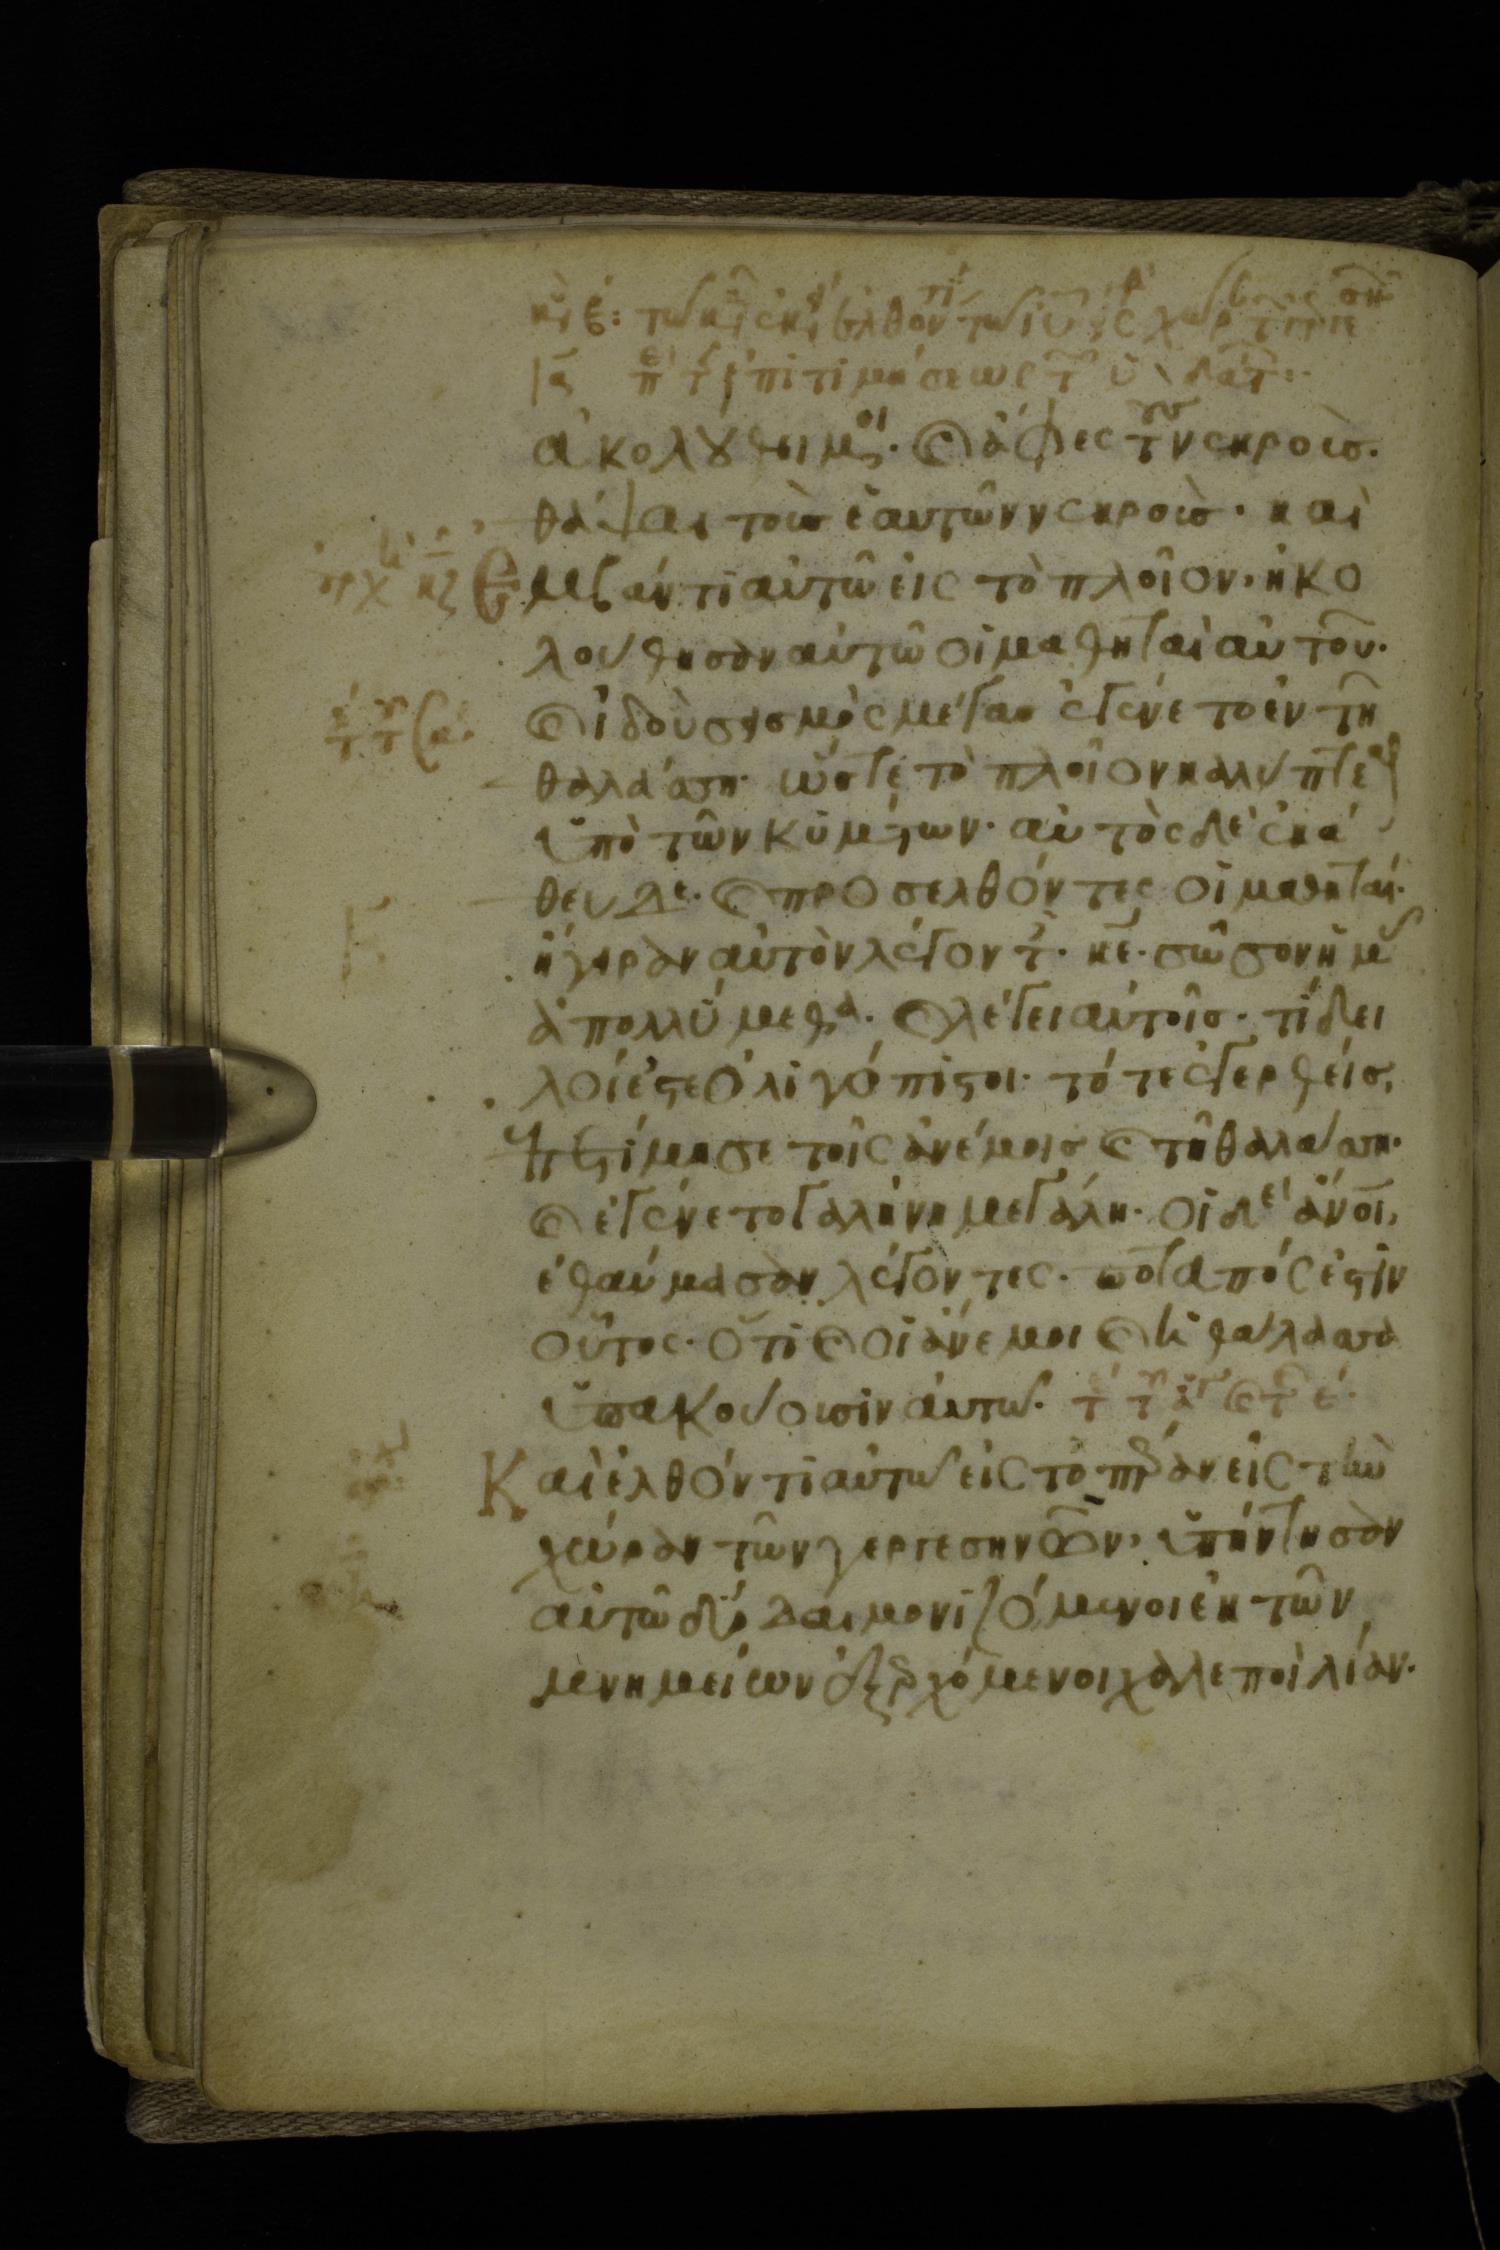 ἀκολούθει μοι· καὶ ἄφες τοὺς νεκροὺς·
θάψαι τοὺς ἑαυτῶν νεκροὺς· καὶ
ἐμβάντι αὐτῶ εἰς τὸ πλοῖον· ἠκο
λούθησαν αὐτῶ οἱ μαθηταὶ αὐτοῦ·
καὶ ἰδοὺ σεισμὸς μέγας ἐγένετο ἐν τῆ
θαλάσση· ὥστε τὸ πλοῖον καλύπτεσθαι
ὑπὸ τῶν κυμάτων· αὐτὸς δὲ ἐκά
θευδε· καὶ προσελθόντες οἱ μαθηταί·
ἤγειραν αὐτὸν λέγοντες· κε· σῶσον ἡμᾶς
ἀπολλύμεθα· καὶ λέγει αὐτοῖς· τί δει
λοί ἐστε ὀλιγόπιστοι· τότε ἐγερθείς,
ἐπετίμησε τοῖς ἀνέμοις καὶ τῆ θαλάσση·
καὶ ἐγένετο γαλήνη μεγάλη· οἱ δὲ ἄνοι,
ἐθαύμασαν λέγοντες· ποταπός ἐστιν
οὗτος· ὅτι καὶ οἱ ἄνεμοι καὶ ἡ θάλασσα
ὑπακούουσιν αὐτῶ·
Καὶ ἐλθόντι αὐτῶ εἰς τὸ πέραν εἰς τὴν
χώραν τῶν γεργεσηνῶν, ὑπήντησαν
αὐτῶ δύο δαιμονιζόμενοι ἐκ τῶν
μνημείων ἐξερχόμενοι χαλεποὶ λίαν·